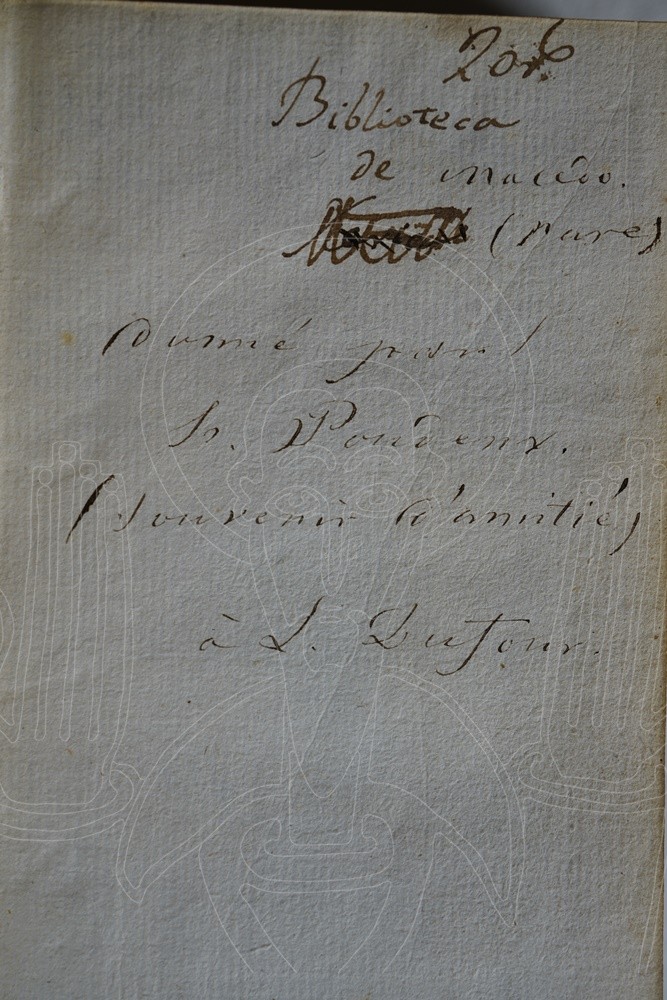 Biblioteca
de macédo.
(rare)
Donné par
h. Poudenx.
(souvenir d'amitié)
à L. Dufour.